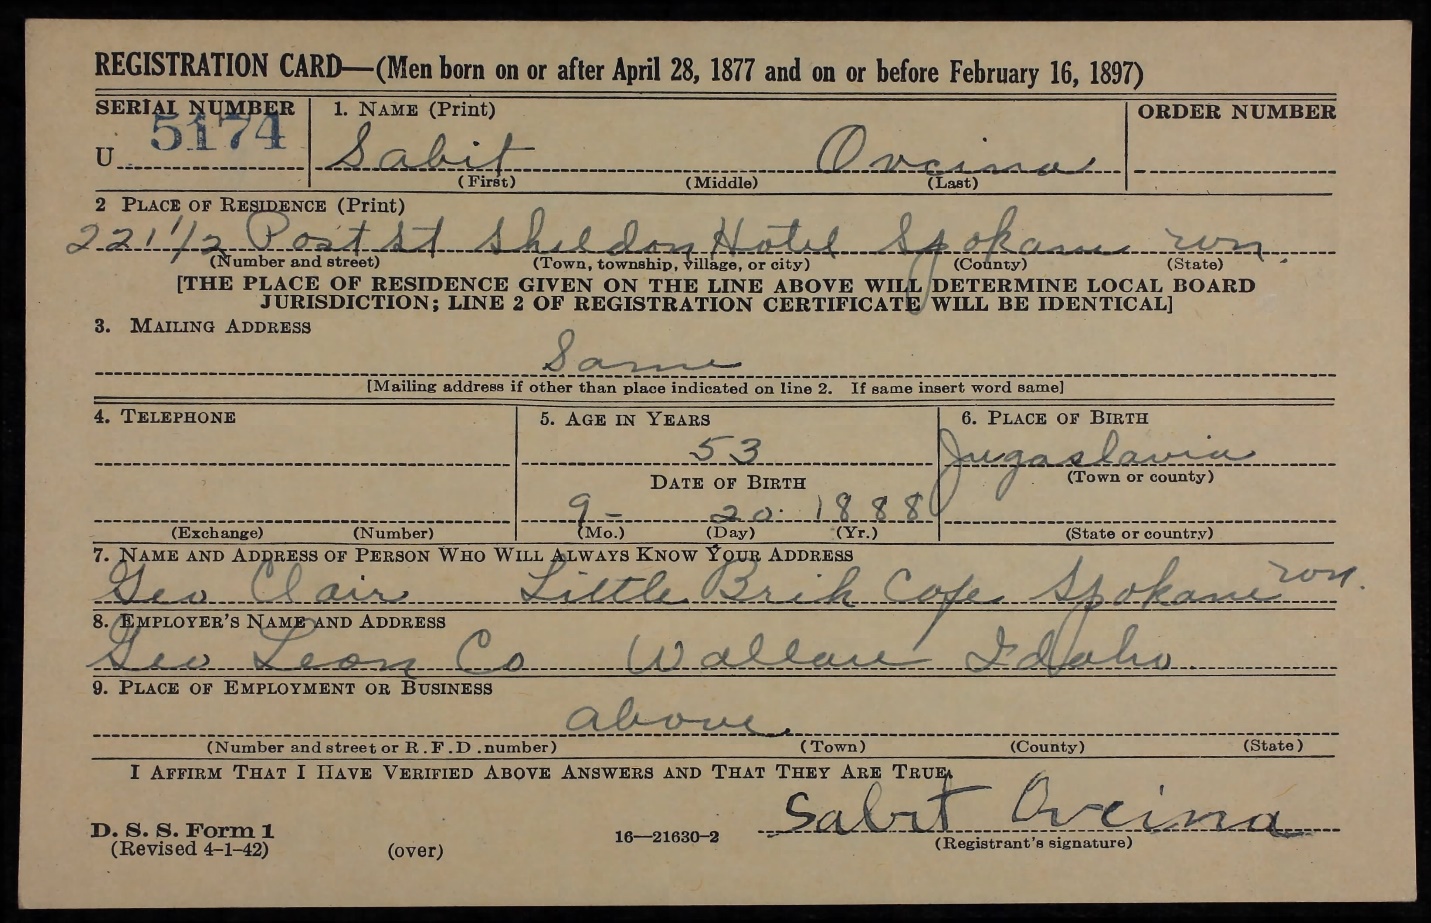 REGISTRATION CARD—(Men born on or after April 28, 1877 and on or before February 16, 1897)
SERIAL NUMBER 1. NAME (Print) ORDER NUMBER
U 5174 Sabit Ovcina
(First) (Middle) (Last)
2 PLACE OF RESIDENCE (Print)
221 1/2 Post St Sheldon Hotel Spokane Wn.
(Number and street) (Town, township, village, or city) (County) (State)
[THE PLACE OF RESIDENCE GIVEN ON THE LINE ABOVE WILL DETERMINE LOCAL BOARD
JURISDICTION; LINE 2 OF REGISTRATION CERTIFICATE WILL BE IDENTICAL]
3. MAILING ADDRESS
Same
[Mailing address if other than place indicated on line 2. If same insert word same]
4. TELEPHONE 5. AGE IN YEARS 6. PLACE OF BIRTH
53 Jugaslavia
DATE OF BIRTH (Town or county)
9- 20. 1888
(Exchange) (Number) (Mo.) (Day) (Yr.) (State or country)
7. NAME AND ADDRESS OF PERSON WHO WILL ALWAYS KNOW YOUR ADDRESS
Geo Clair Little Brik Cafe Spokane Wn.
8. EMPLOYER'S NAME AND ADDRESS
Geo Leon Co Wallace Idaho.
9. PLACE OF EMPLOYMENT OR BUSINESS
above.
(Number and street or R.F.D. number) (Town) (County) (State)
I AFFIRM THAT I HAVE VERIFIED ABOVE ANSWERS AND THAT THEY ARE TRUE.
Sabit Ovcina
D. S. S. Form 1 16—21630-2
(Revised 4-1-42) (over) (Registrant's signature)